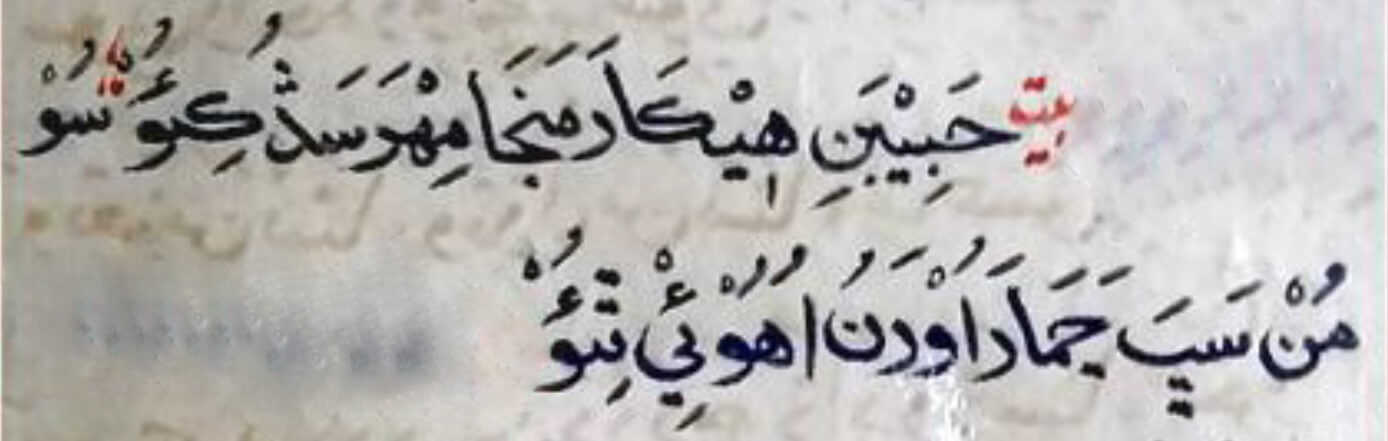 بيت حَبِيْبَنِ هِيْکَارَ مَنجَا مِهْرَ سَڎُ کِيَوُ سُوْ
مُنْ سَڀَ ڄَمَارَ اُوْرَنُ اهُوْئِيْ تِئُوْ